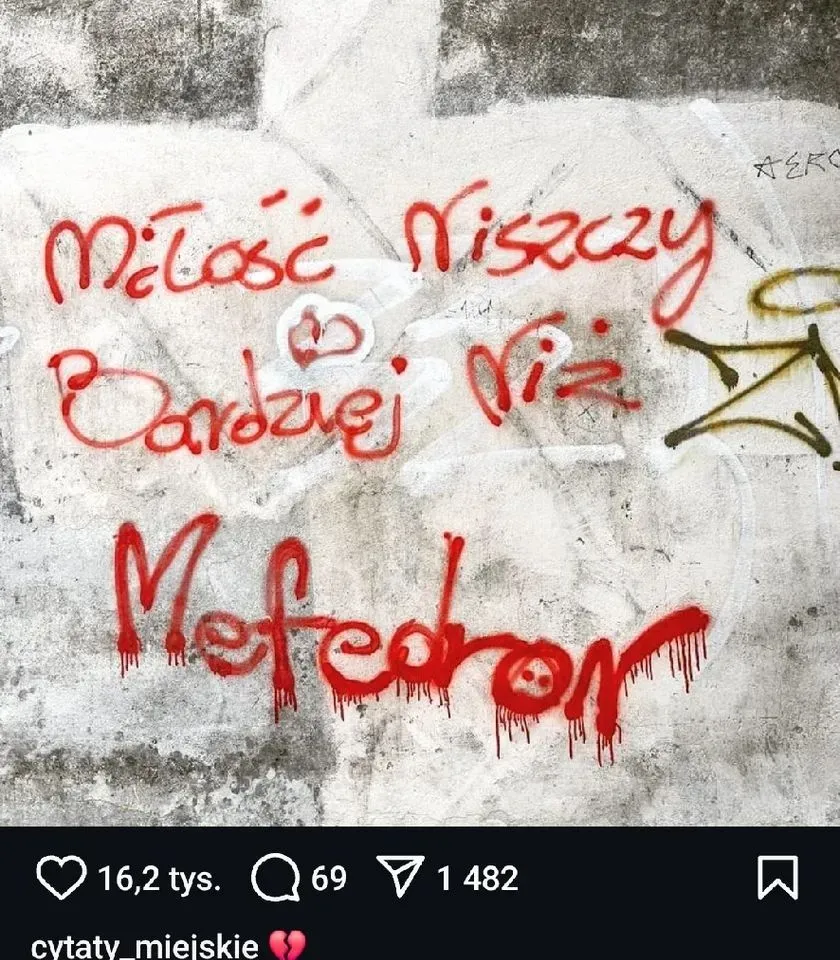 Miłość Niszczy
Bardziej Niż
Mefedron
16,2 tys. 69 1 482
cytaty_miejskie 💔